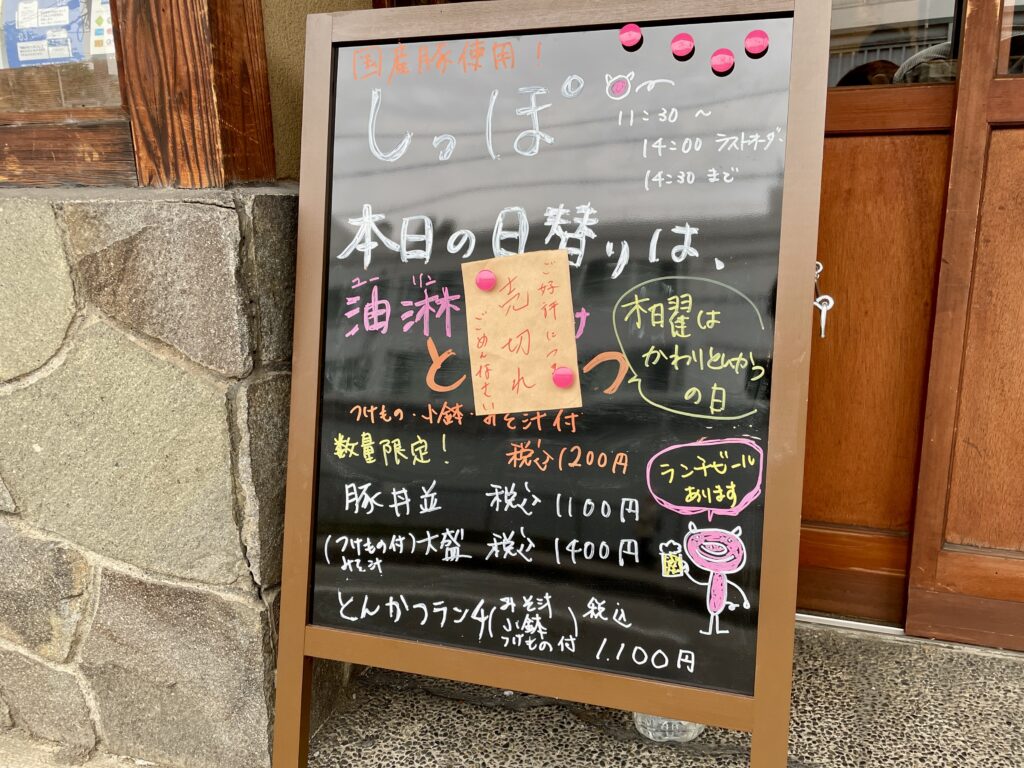 国産豚使用!
しっぽ°
11:30~
14:00 ラストオーダー
14:30 まで
本日の日替りは、
ユー リン
油淋 け
と つ
ご好評につき
売切れ
ごめん付さい
木曜は
かわりとんかつ
の日
つけもの・小鉢・みそ汁付
数量限定! 税込1200円
豚丼並 税込 1100円
(つけもの付)大盛 税込 1400円
みそ汁
とんかつランチ(みそ汁 小鉢 つけもの付) 税込
1.100円
ランチビール
あります